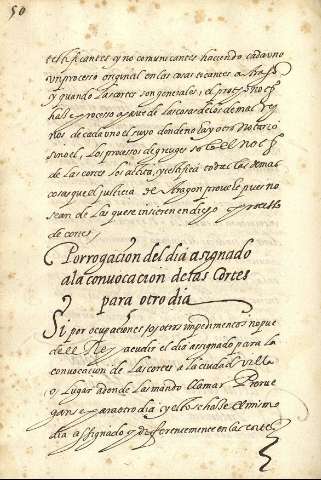 50
testificantes y no comunicantes haciendo cada uno
un processo original en las cosas tocantes a su
y quando las cortes son generales, el prot
haze processo a parte de las cosas de los demas Rey
nos de cada uno el suyo donde no ay otro Notario
sino el, Los processos de greuges solo el not
de las cortes los actita, y testifica todas las demas
cosas que el justicia de Aragon provee pues no
sean de las que se insieren en dicho processo
de cortes,
Porrogacion del dia asignado
a la convocacion de las Cortes
para otro dia
Si por ocupaciones, o otros impedimentos no pue
de el Rey acudir el dia assignado para la
convocacion de Las cortes a la ciudad, villa
o, Lugar adonde las mando llamar Prorue
ganse para otro dia y esto se haze el mismo
dia assignado y differentemente en las cortes